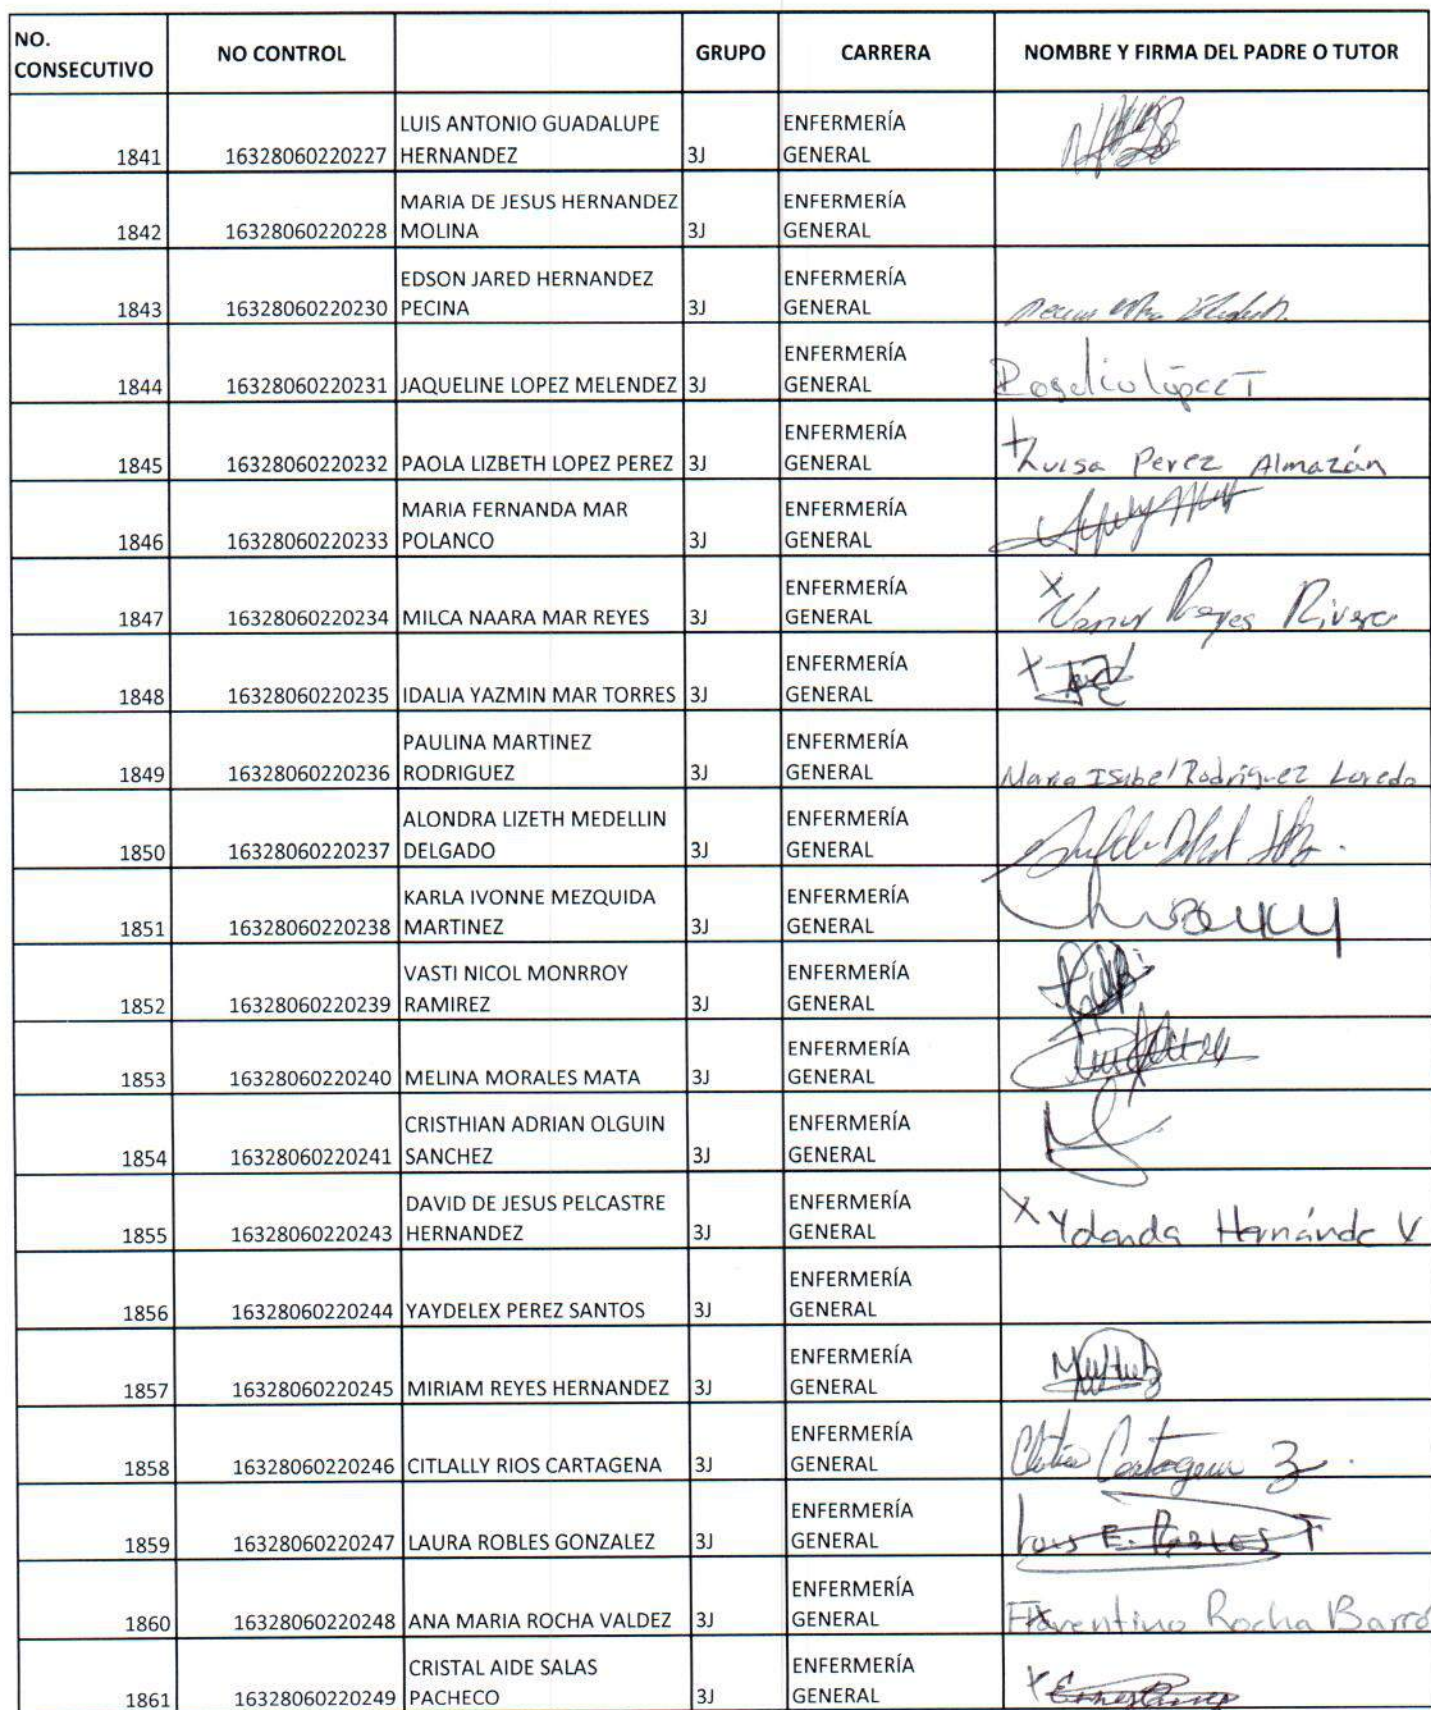 NO. CONSECUTIVO NO CONTROL GRUPO CARRERA NOMBRE Y FIRMA DEL PADRE O TUTOR
1841 16328060220227 LUIS ANTONIO GUADALUPE HERNANDEZ 3J ENFERMERÍA GENERAL
1842 16328060220228 MARIA DE JESUS HERNANDEZ MOLINA 3J ENFERMERÍA GENERAL
1843 16328060220230 EDSON JARED HERNANDEZ PECINA 3J ENFERMERÍA GENERAL
1844 16328060220231 JAQUELINE LOPEZ MELENDEZ 3J ENFERMERÍA GENERAL Rogelio López T
1845 16328060220232 PAOLA LIZBETH LOPEZ PEREZ 3J ENFERMERÍA GENERAL Luisa Perez Almazán
1846 16328060220233 MARIA FERNANDA MAR POLANCO 3J ENFERMERÍA GENERAL
1847 16328060220234 MILCA NAARA MAR REYES 3J ENFERMERÍA GENERAL X Reyes Rivera
1848 16328060220235 IDALIA YAZMIN MAR TORRES 3J ENFERMERÍA GENERAL X
1849 16328060220236 PAULINA MARTINEZ RODRIGUEZ 3J ENFERMERÍA GENERAL Maria Isabel Rodríguez Loredo
1850 16328060220237 ALONDRA LIZETH MEDELLIN DELGADO 3J ENFERMERÍA GENERAL
1851 16328060220238 KARLA IVONNE MEZQUIDA MARTINEZ 3J ENFERMERÍA GENERAL
1852 16328060220239 VASTI NICOL MONRROY RAMIREZ 3J ENFERMERÍA GENERAL
1853 16328060220240 MELINA MORALES MATA 3J ENFERMERÍA GENERAL
1854 16328060220241 CRISTHIAN ADRIAN OLGUIN SANCHEZ 3J ENFERMERÍA GENERAL
1855 16328060220243 DAVID DE JESUS PELCASTRE HERNANDEZ 3J ENFERMERÍA GENERAL X Yolanda Hernánde V
1856 16328060220244 YAYDELEX PEREZ SANTOS 3J ENFERMERÍA GENERAL
1857 16328060220245 MIRIAM REYES HERNANDEZ 3J ENFERMERÍA GENERAL
1858 16328060220246 CITLALLY RIOS CARTAGENA 3J ENFERMERÍA GENERAL Cartagena Z
1859 16328060220247 LAURA ROBLES GONZALEZ 3J ENFERMERÍA GENERAL Luis E. ROBLES T
1860 16328060220248 ANA MARIA ROCHA VALDEZ 3J ENFERMERÍA GENERAL Florentino Rocha Barró
1861 16328060220249 CRISTAL AIDE SALAS PACHECO 3J ENFERMERÍA GENERAL X